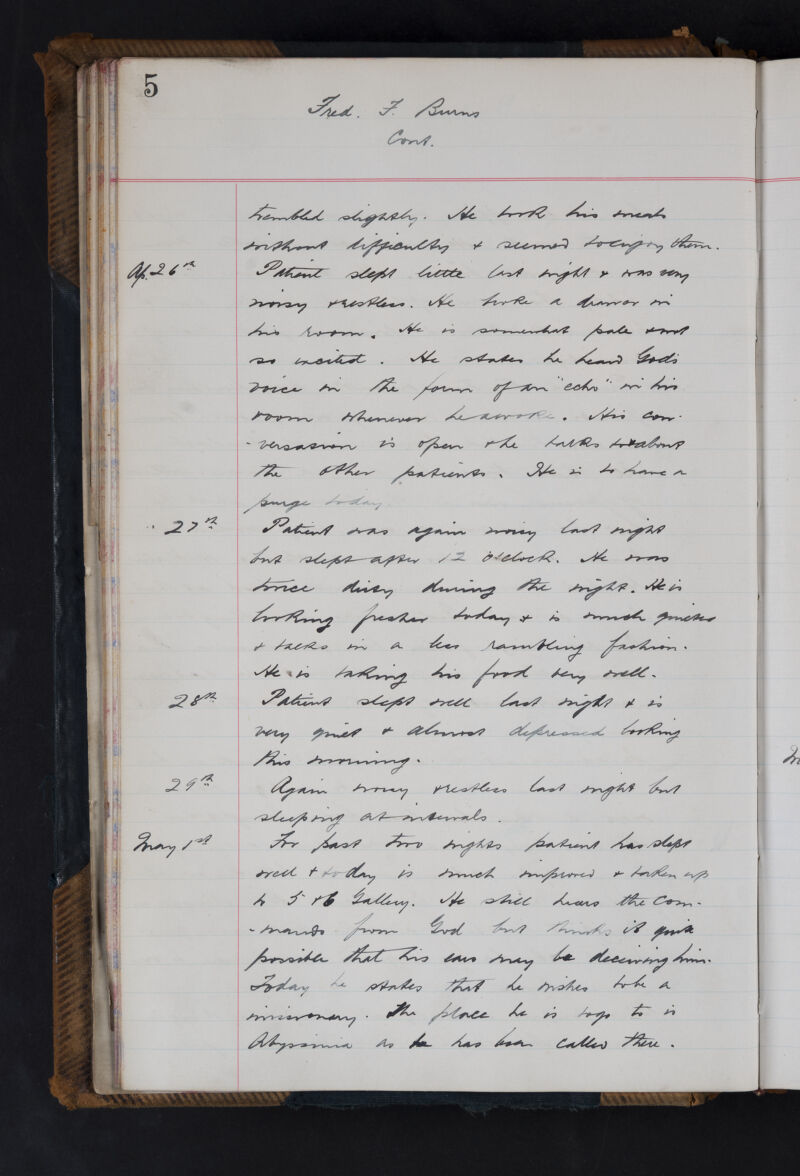 5
Fred. F. Burns
Cont.
trembled slightly. He took his meals
without difficulty & seemed to enjoy them.
Ap. 26th Patient slept little last night & was very
noisy & restless. He broke a drawer in
his room. He is somewhat pale & not
so excited. He states he heard God's
voice in the form of an "echo" in his
room whenever he awoke. His con-
-versation is open & he talks to & about
the other patients. He is to have a
purge today.
" 27th Patient was again noisy last night
but slept after 12 o'clock. He was
twice dirty during the night. He is
looking fresher today & is much quieter
& talks in a less rambling fashion.
He is taking his food very well.
28th Patient slept well last night & is
very quiet & almost depressed looking
this morning.
29th Again noisy & restless last night but
sleeping at intervals.
May 1st For past two nights patient has slept
well & today is much improved & taken up
to 5 & 6 Gallery. He still hears the com-
-mands from God but thinks it quite
possible that his ears may be deceiving him.
Today he states that he wishes to be a
missionary. The place he is to go to is
Abyssinia as he has been called there.